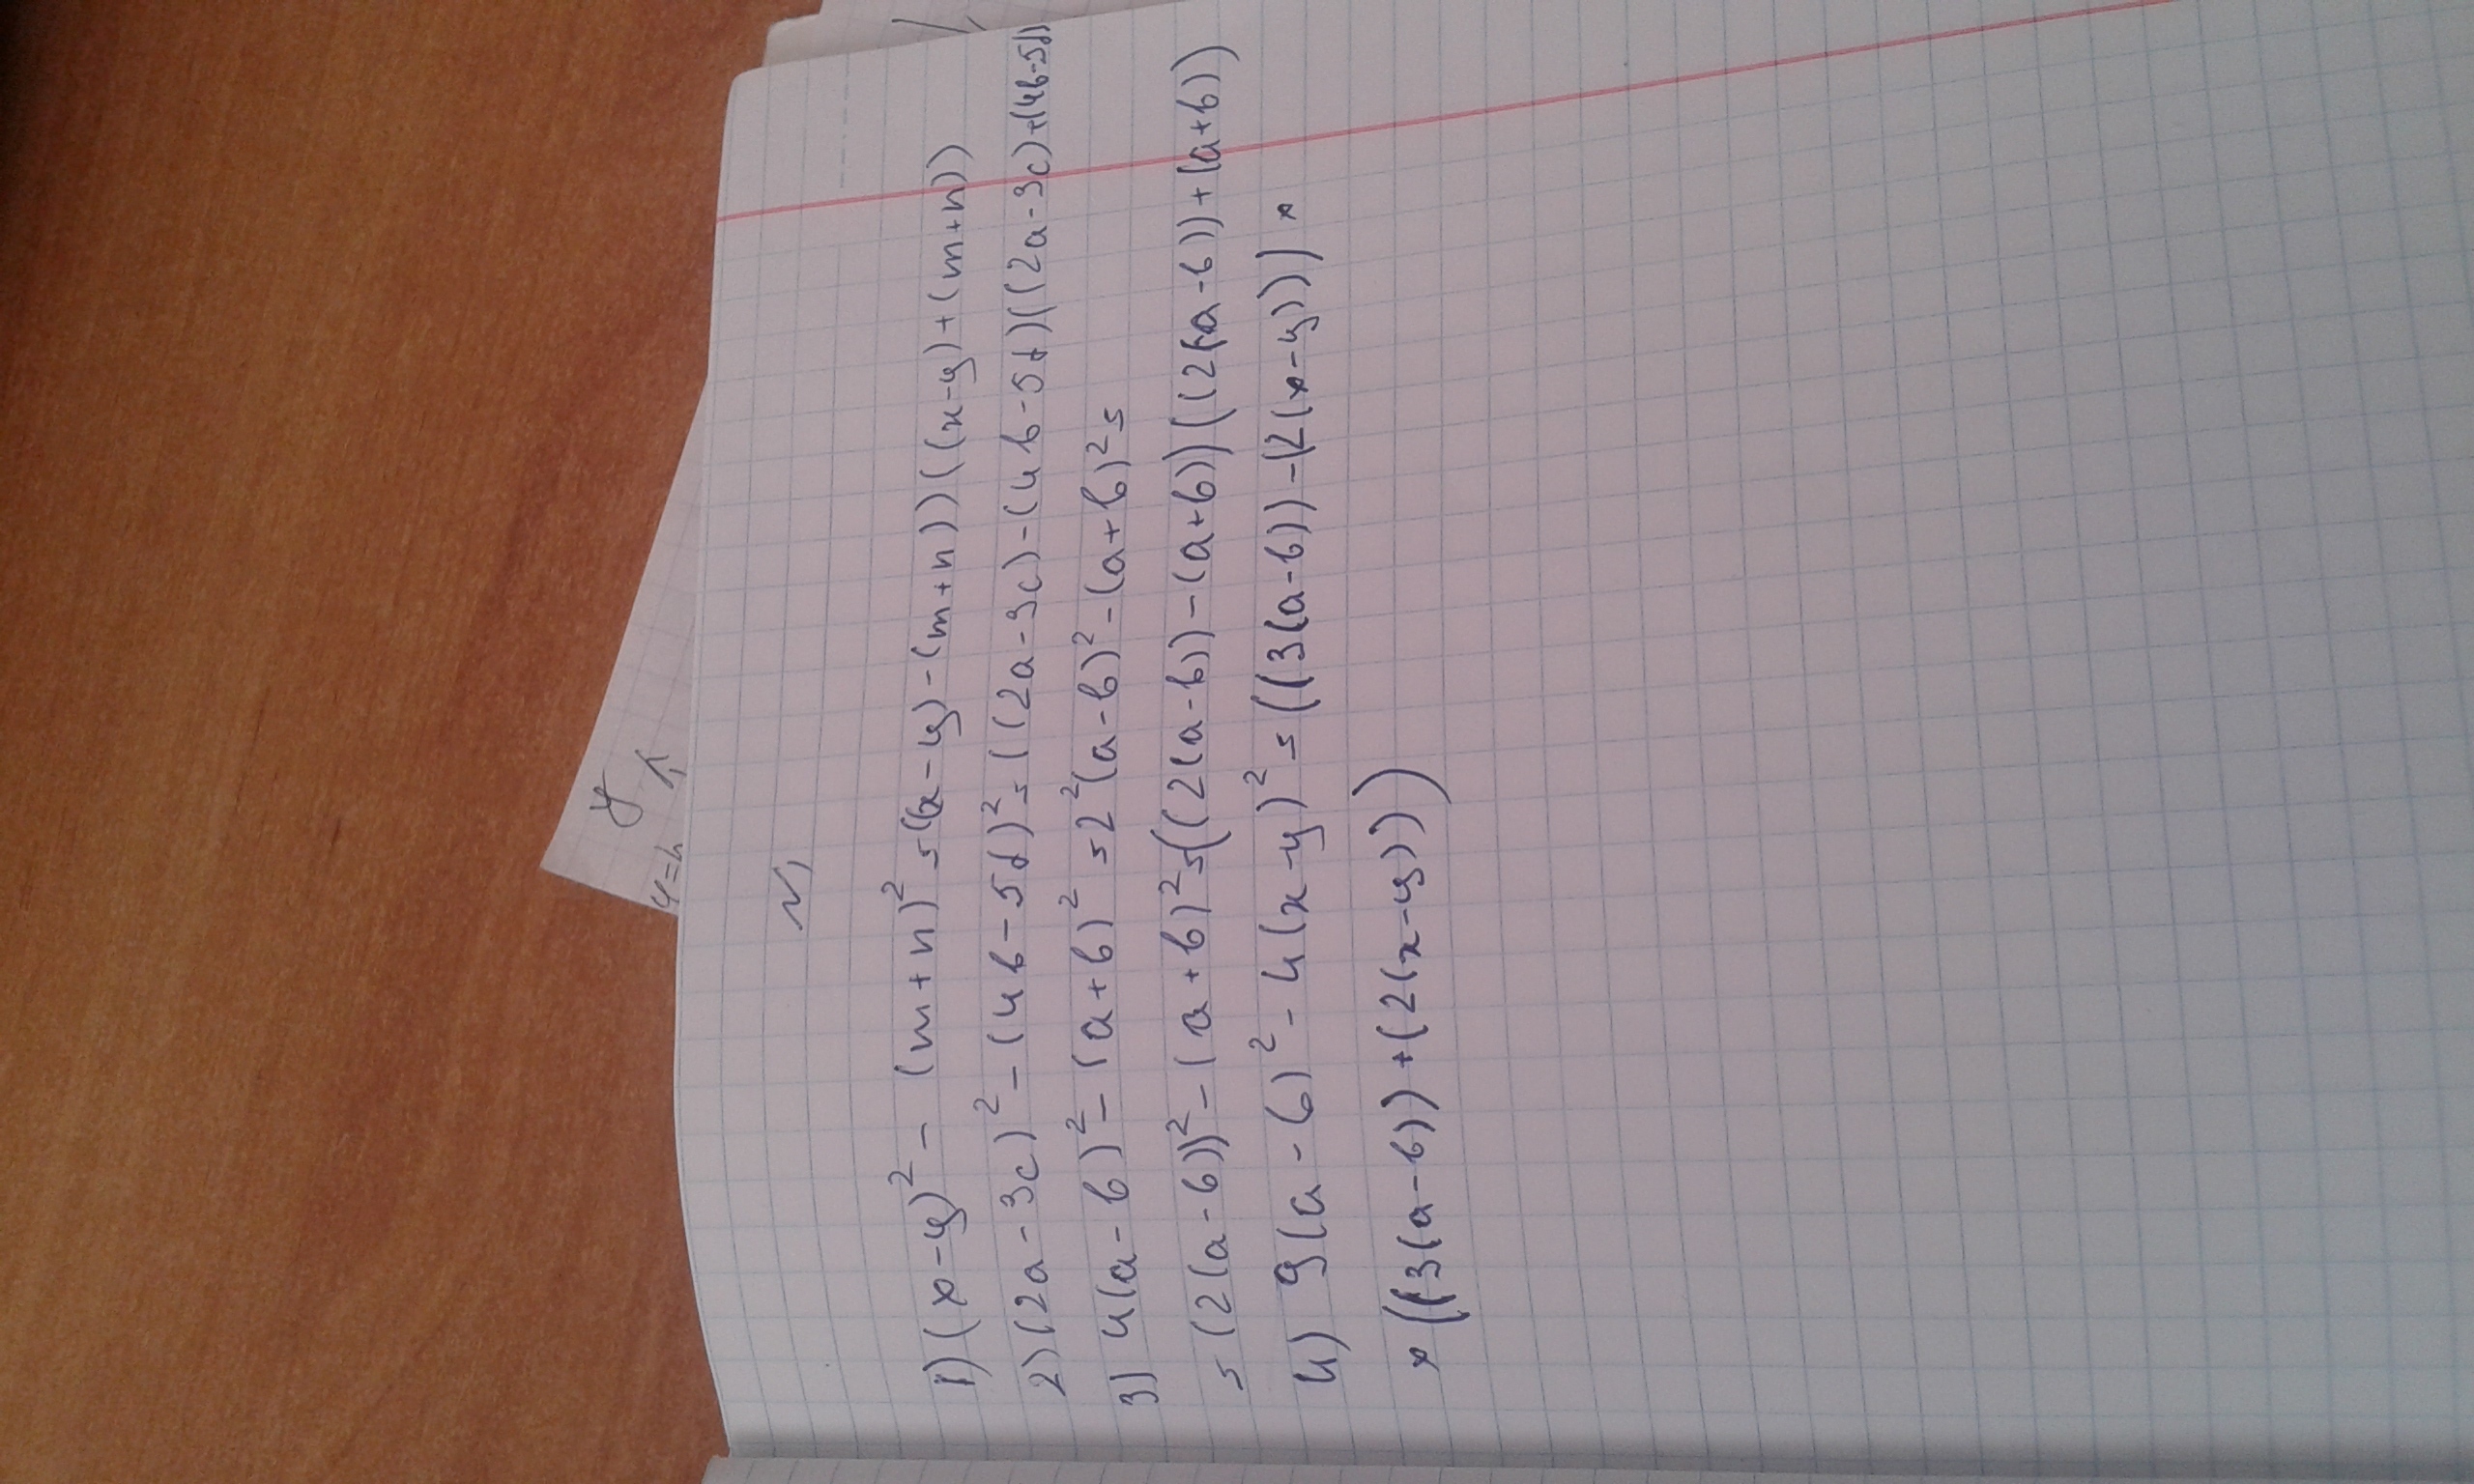 y
y=h
N1
1) (x-y)² - (m+n)² = ((x-y)-(m+n))((x-y)+(m+n))
2) (2a-3c)² - (4b-5d)² = ((2a-3c)-(4b-5d)((2a-3c)+(4b-5d))
3) 4(a-b)² - (a+b)² = 2²(a-b)² - (a+b)² =
= (2(a-b))² - (a+b)² = ((2(a-b))-(a+b))((2(a-b))+(a+b))
4) 9(a-b)² - 4(x-y)² = ((3(a-b))-(2(x-y))) x
x ((3(a-b))+(2(x-y)))